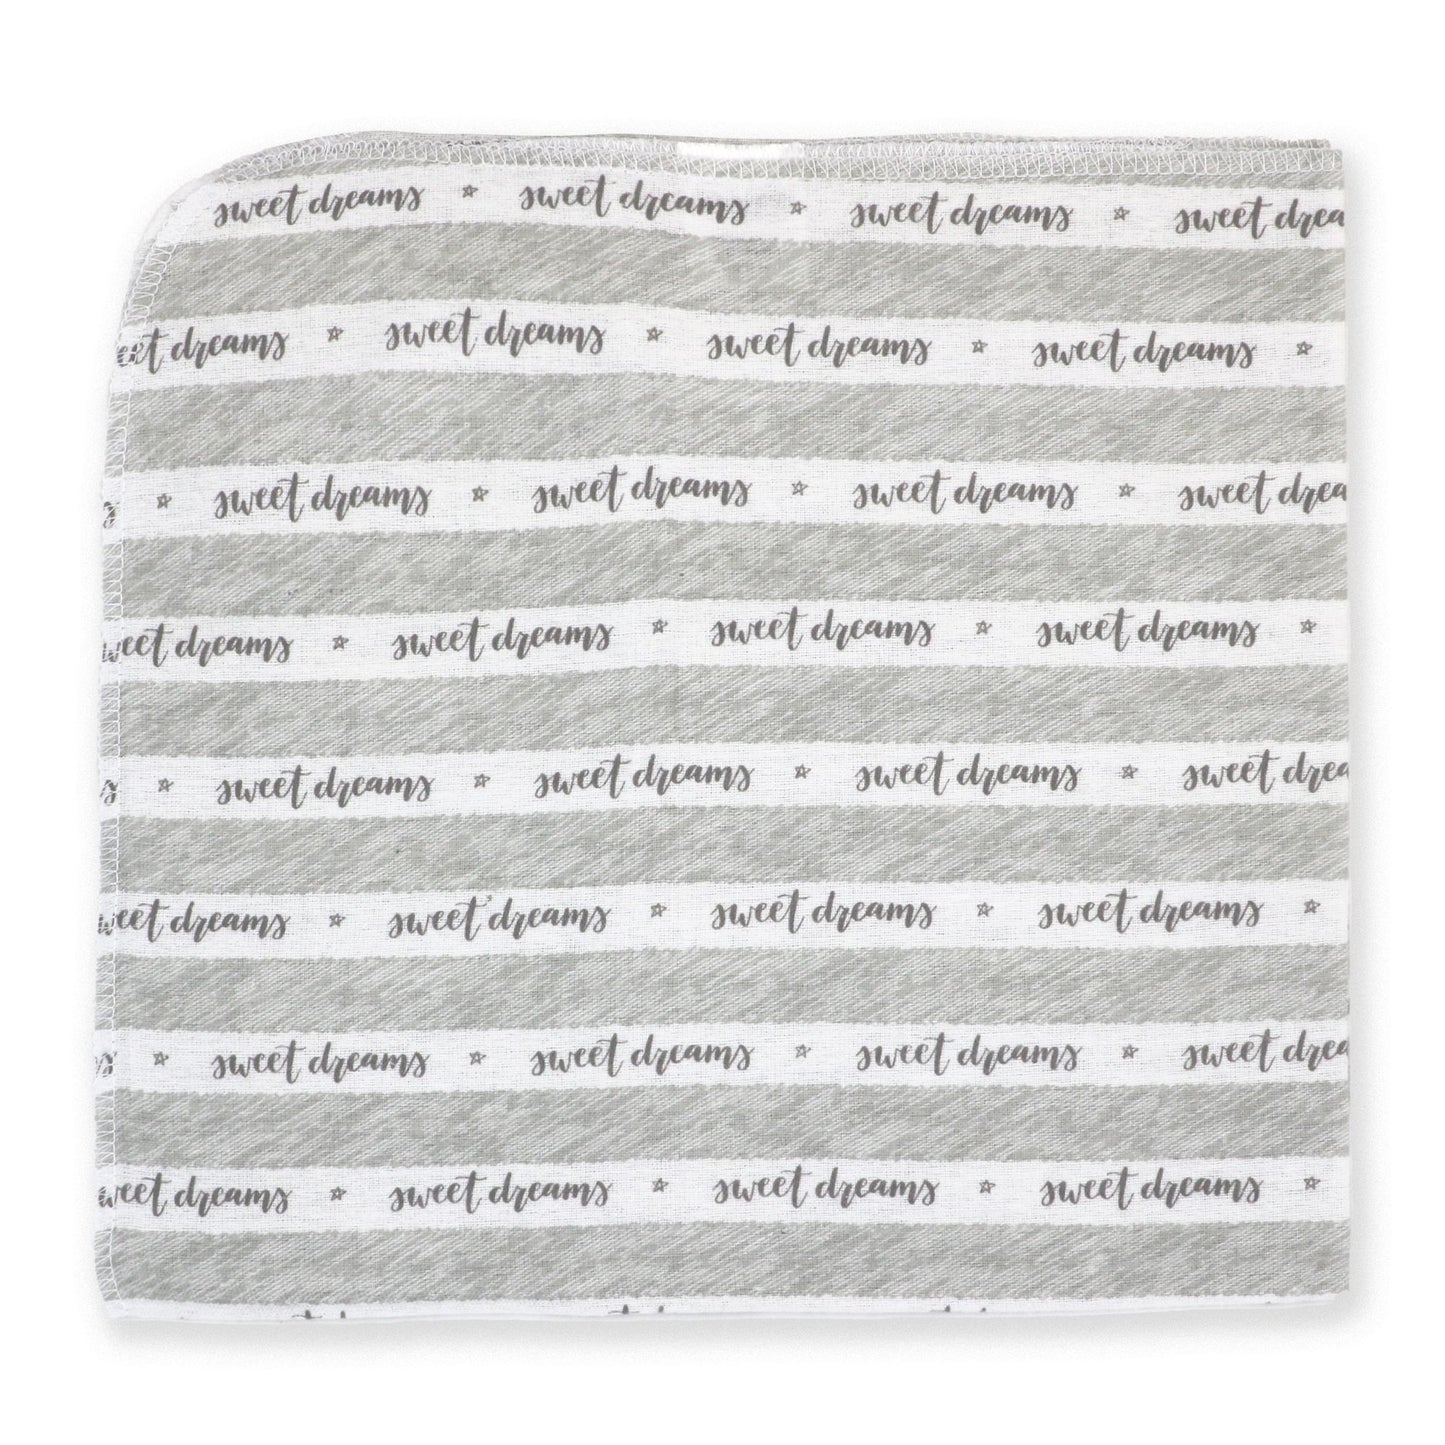 sweet dreams ☆ sweet dreams ☆ sweet dreams ☆ sweet drea
eet dreams ☆ sweet dreams ☆ sweet dreams ☆ sweet dreams ☆
s ☆ sweet dreams ☆ sweet dreams ☆ sweet dreams ☆ sweet drea
weet dreams ☆ sweet dreams ☆ sweet dreams ☆ sweet dreams ☆
s ☆ sweet dreams ☆ sweet dreams ☆ sweet dreams ☆ sweet drea
weet dreams ☆ sweet dreams ☆ sweet dreams ☆ sweet dreams ☆
s ☆ sweet dreams ☆ sweet dreams ☆ sweet dreams ☆ sweet drea
weet dreams ☆ sweet dreams ☆ sweet dreams ☆ sweet dreams ☆